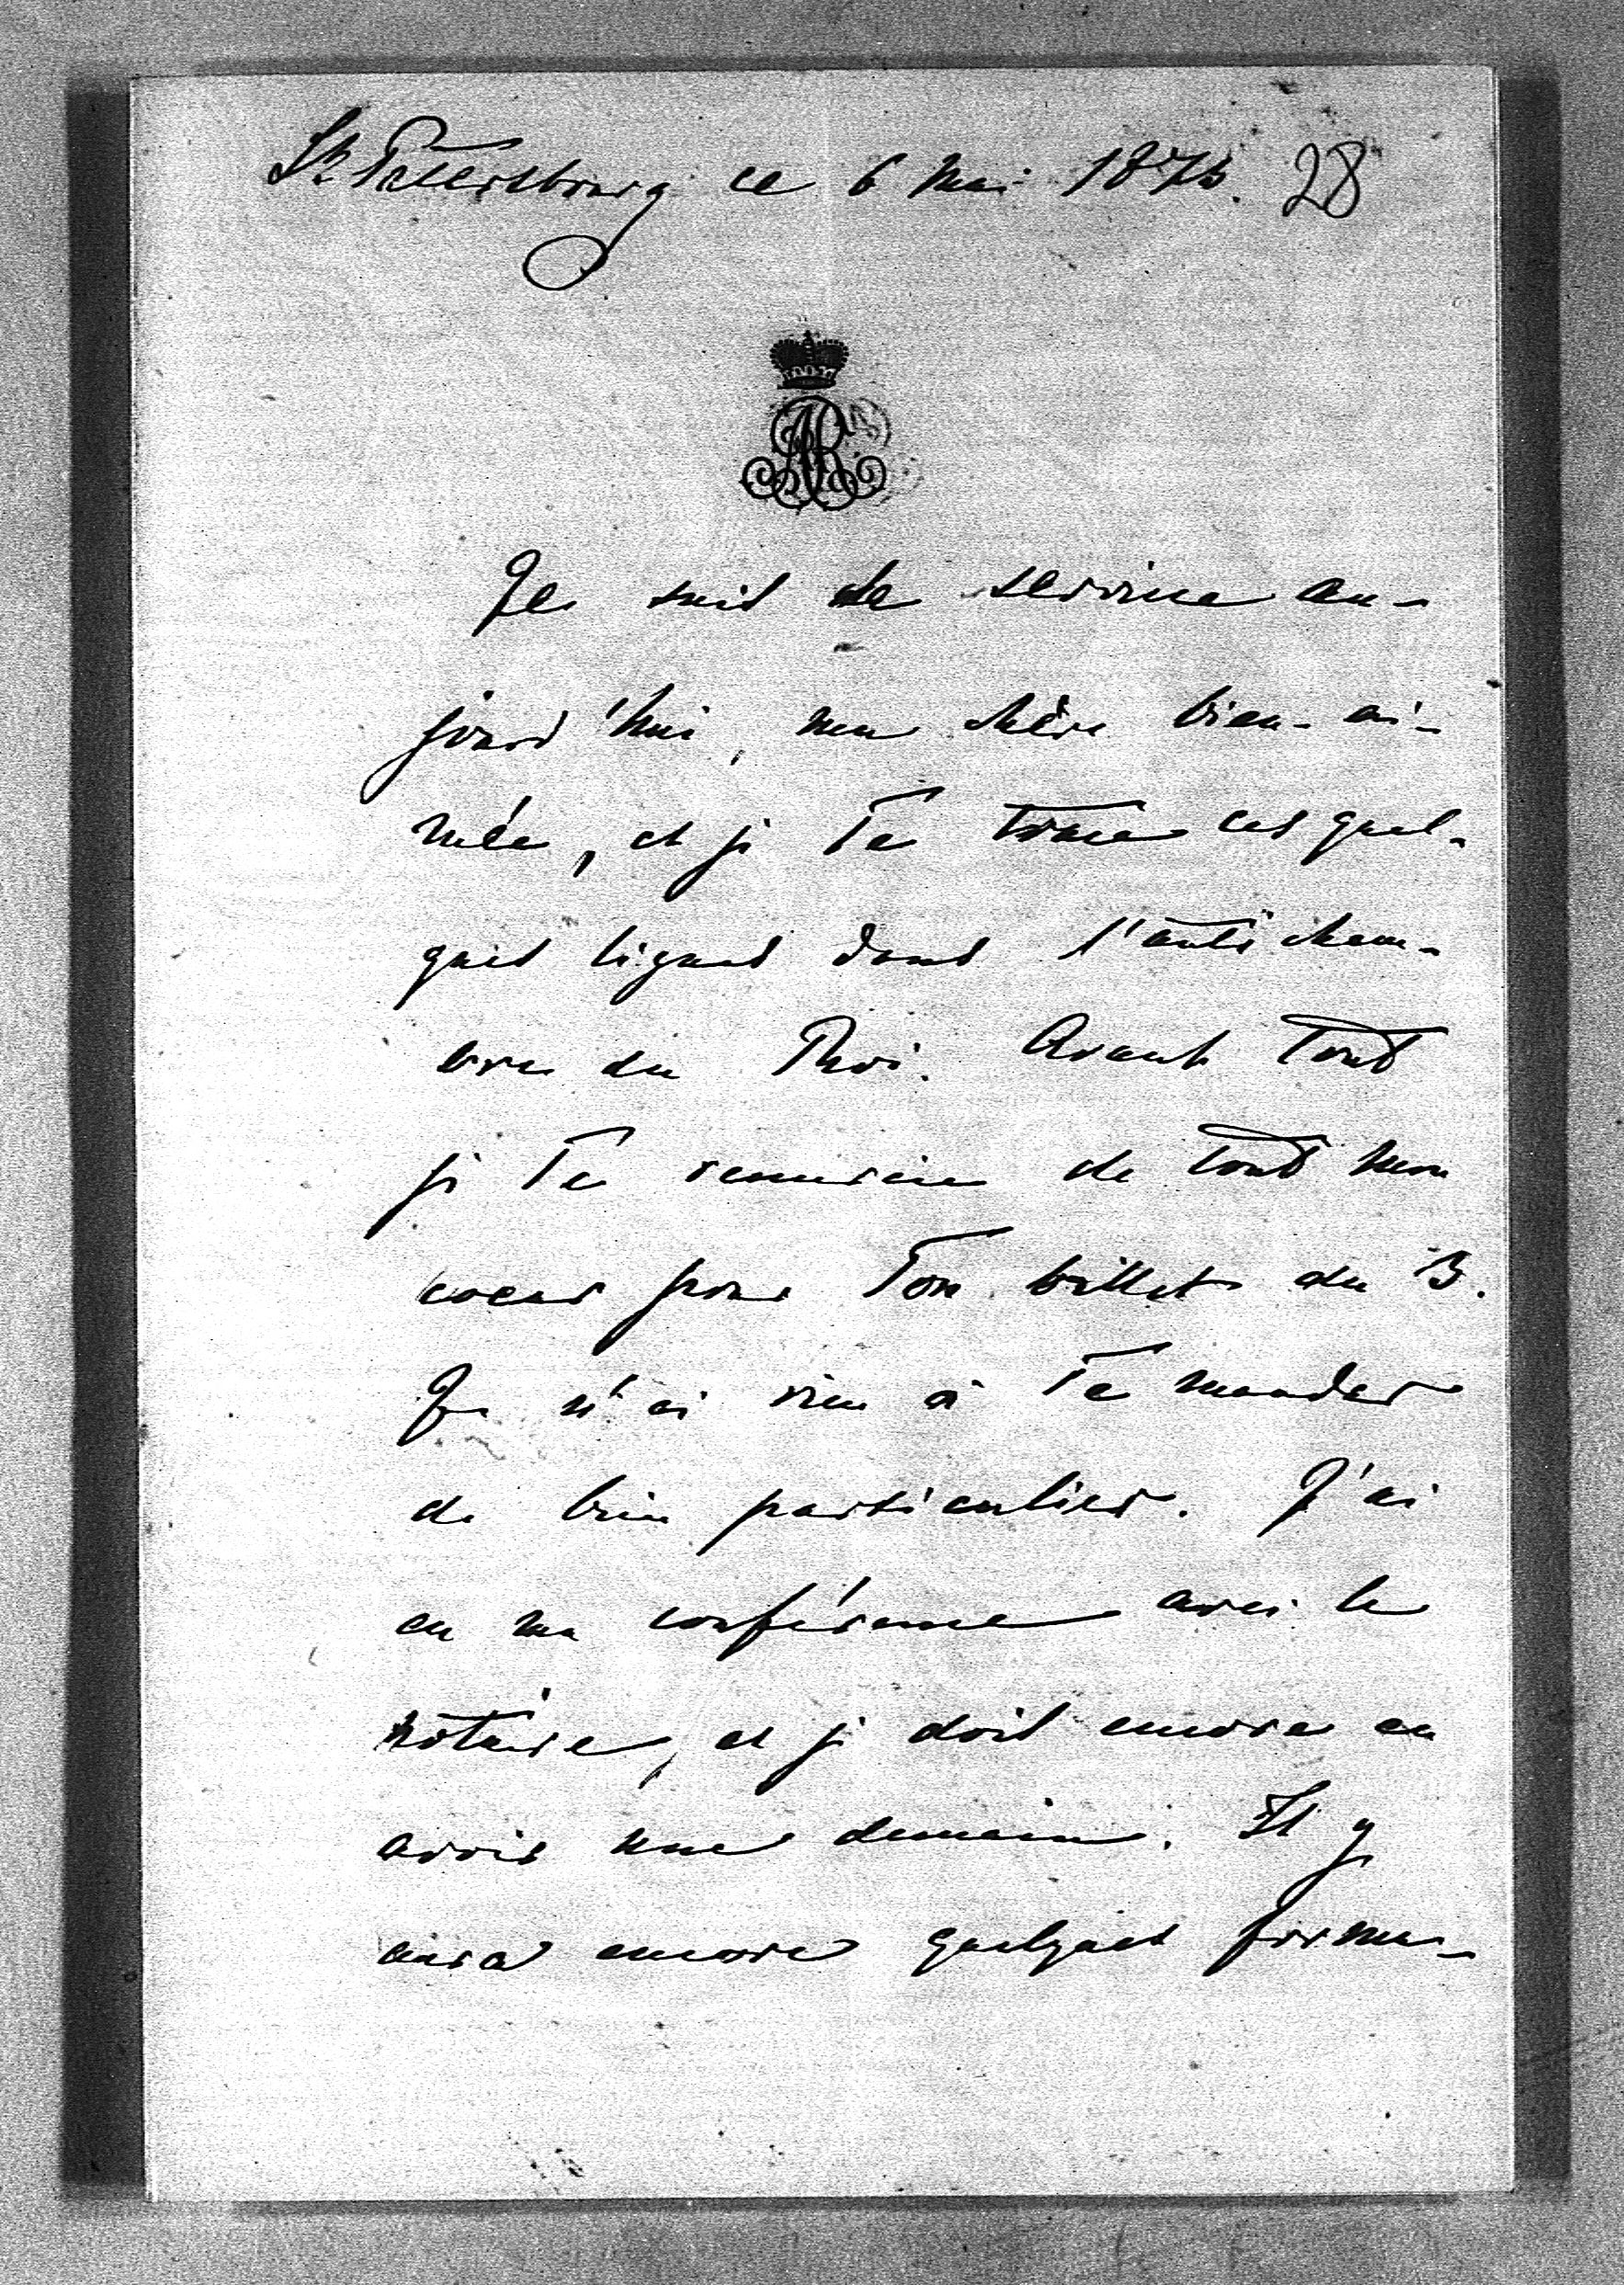 St Pétersbourg ce 6 Mai 1873. 28
Je suis de service au-
jourd'hui, ma chère bien-ai-
mée, et je Te trace ces quel-
ques lignes dans l'anticham-
bre du Roi. Avant tout
je Te remercie de tout mon
coeur pour Ton billet du 3.
Je n'ai rien à Te mander
de bien particulier. J'ai
eu ma conférence avec le
notaire, et je dois encore en
avoir une demain. Il y
aura encore quelques forma-